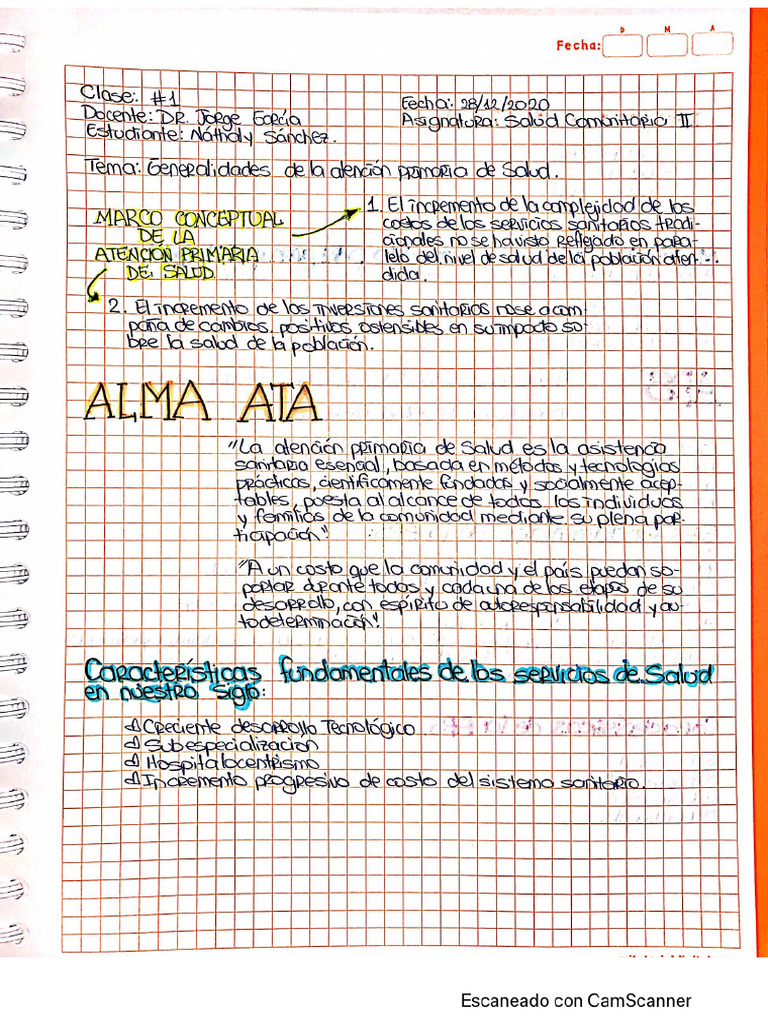 D M A
Fecha:
Clase: #1
Fecha: 28/12/2020
Docente: DR. Jorge García
Asignatura: Salud Comunitaria II
Estudiante: Nathaly Sánchez.
Tema: Generalidades de la atención primaria de Salud.
MARCO CONCEPTUAL
DE LA
ATENCION PRIMARIA
DE SALUD
1. El incremento de la complejidad de los
costos de los servicios sanitarios tradi-
cionales no se ha visto reflejado en para-
lelo del nivel de salud de la población aten-
dida.
2. El incremento de las inversiones sanitarios no se acom
paña de cambios positivos ostensibles en su impacto so-
bre la salud de la población.
ALMA ATA
"La atención primaria de Salud es la asistencia
sanitaria esencial, basada en métodos y tecnologías
prácticas, científicamente fundados y socialmente acep-
tables, puesta al alcance de todos los individuos
y familias de la comunidad mediante su plena par-
ticipación".
"A un costo que la comunidad y el país puedan so-
portar durante todas y cada una de las etapas de su
desarrollo, con espíritu de autoresponsabilidad y au-
todeterminación".
Características fundamentales de los servicios de Salud
en nuestro siglo:
Creciente desarrollo Tecnológico
Subespecialización
Hospitalocentrismo
Incremento progresivo de costo del sistema sanitario.
Escaneado con CamScanner